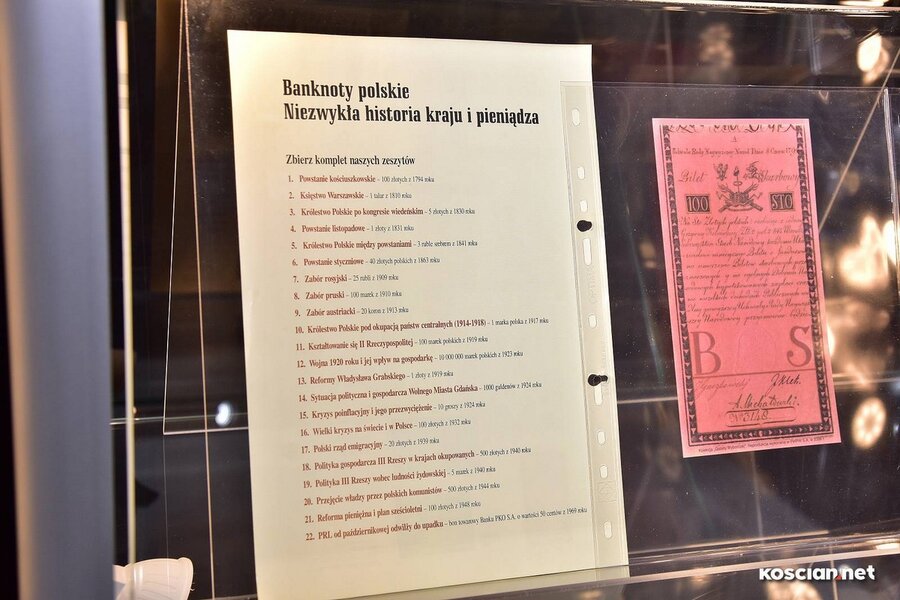 Banknoty polskie
Niezwykła historia kraju i pieniądza
Zbierz komplet naszych zeszytów
1. Powstanie kościuszkowskie – 100 złotych z 1794 roku
2. Księstwo Warszawskie – 1 talar z 1810 roku
3. Królestwo Polskie po kongresie wiedeńskim – 5 złotych z 1830 roku
4. Powstanie listopadowe – 1 złoty z 1831 roku
5. Królestwo Polskie między powstaniami – 3 ruble srebrem z 1841 roku
6. Powstanie styczniowe – 40 złotych polskich z 1863 roku
7. Zabór rosyjski – 25 rubli z 1909 roku
8. Zabór pruski – 100 marek z 1910 roku
9. Zabór austriacki – 20 koron z 1913 roku
10. Królestwo Polskie pod okupacją państw centralnych (1914-1918) – 1 marka polska z 1917 roku
11. Kształtowanie się II Rzeczypospolitej – 100 marek polskich z 1919 roku
12. Wojna 1920 roku i jej wpływ na gospodarkę – 10 000 000 marek polskich z 1923 roku
13. Reformy Władysława Grabskiego – 1 złoty z 1919 roku
14. Sytuacja polityczna i gospodarcza Wolnego Miasta Gdańska – 1000 guldenów z 1924 roku
15. Kryzys poinflacyjny i jego przezwyciężenie – 10 groszy z 1924 roku
16. Wielki kryzys na świecie i w Polsce – 100 złotych z 1932 roku
17. Polski rząd emigracyjny – 20 złotych z 1939 roku
18. Polityka gospodarcza III Rzeszy w krajach okupowanych – 500 złotych z 1940 roku
19. Polityka III Rzeszy wobec ludności żydowskiej – 5 marek z 1940 roku
20. Przejęcie władzy przez polskich komunistów – 500 złotych z 1944 roku
21. Reforma pieniężna i plan sześcioletni – 100 złotych z 1948 roku
22. PRL od październikowej odwilży do upadku – bon towarowy Banku PKO S.A. o wartości 50 centów z 1969 roku
A
Bilet Skarbowy
100 S10
B S
KOSCIAN.net